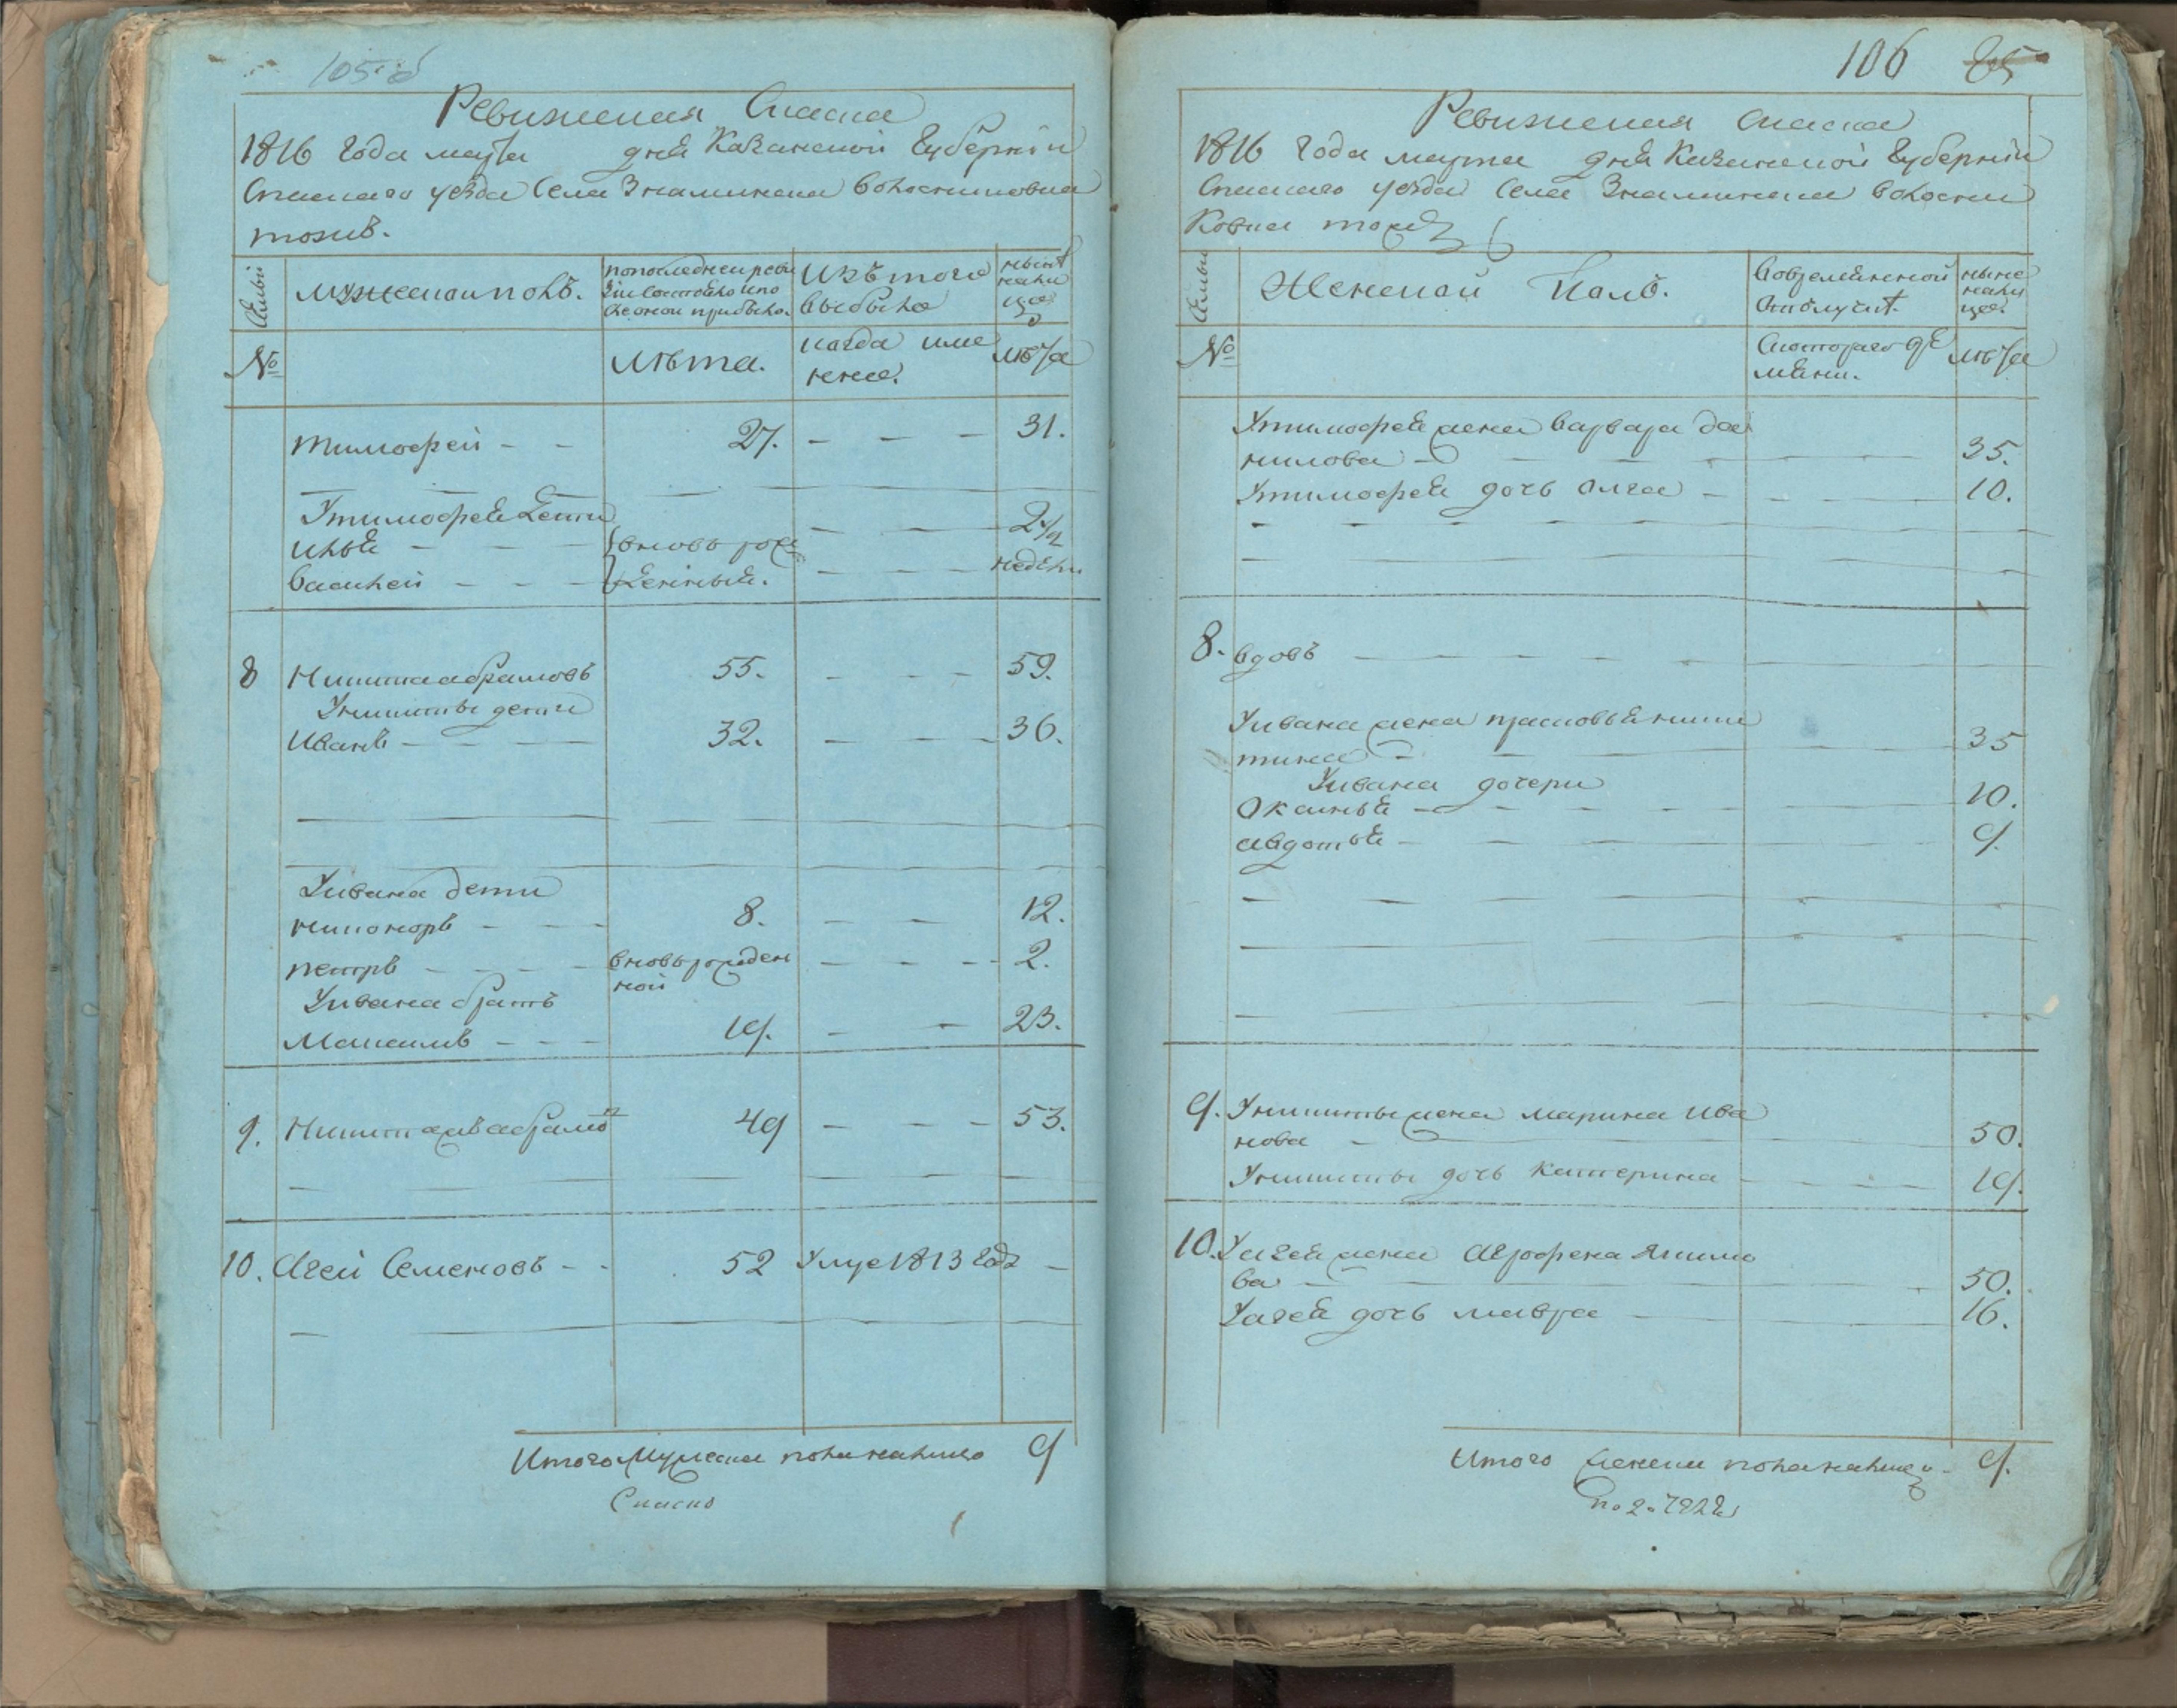 105об
Ревижская Сказка
1816 Года марта дня Казанской Губернiи
Спаскаго уезда Села Знаминска волостиновка
тожив.
Семьи
Мужескои полъ.
по последнеи реви
зiи состояло и по
оной прибыло.
Изъ того
выбыло
ныне
нали
цо
№
Лѣта.
когда име
нно.
лѣта
Тимофеи - - 27. - - - 31.
У тимофея дети
Илья - - вновь рож - - - 2 1/2
Василеи - - - денныя. - - - недели
8 Никита абрамовъ 55. - - - 59.
У никиты дети
Иванъ - - - 32. - - - 36.
У ивана дети
никоноръ - - - 8. - - 12.
петръ - - - вновь рожден - - - 2.
ной
У ивана братъ
Максимъ - - - 19. - - 23.
9. Никита абрамо 49 - - - 53.
10. Агеи Семеновъ - - 52 Умре 1813 году -
Итого мужеска пола налицо 9
Сказка
106 85
Ревижская сказка
1816 Года марта дня Казанской Губернiи
Спаскаго уезда Села Знаминска волости
Семьи
Женской Полъ.
Во временной
отлучке.
ныне
нали
цо.
№
С котораго вре
мяни.
лѣта
У тимофея жена варвара да
нилова - 35.
У тимофея дочь олга - 10.
8. вдовъ
У ивана жена прасковья ники
тина - 35
У ивана дочери
Оксинья - 10.
авдотья - 9.
9. У никиты жена марина ива
нова - 50.
У никиты дочь катерина 19.
10. У агея жена Аграфена Якимо
ва - 50.
У агея дочь мавра 16.
Итого женска пола налицо 9.